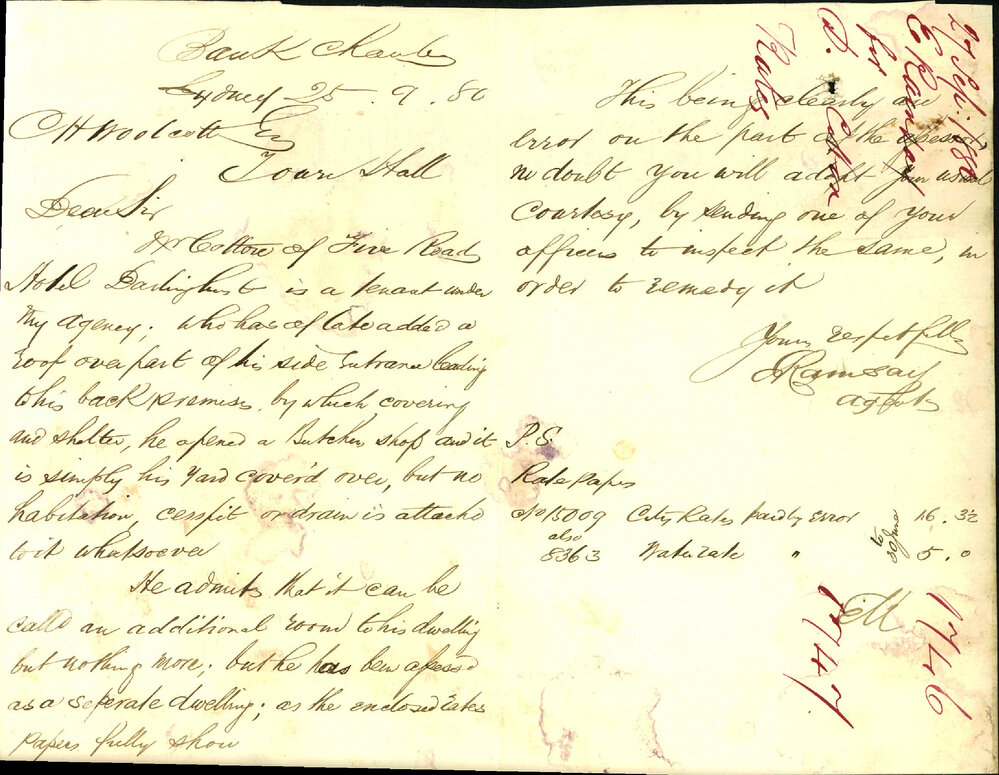 Bank Chambers
Sydney 25 . 9 . 80
C H Woolcott Esq
Town Hall
Dear Sir
Mr Cottow of Five Roads
Hotel Darlinghurst is a tenant under
My agency; who has of late added a
roof over part of his side Entrance leading
to his back premises, by which covering
and shelter, he opened a Butchers shop and it
is simply his Yard cover'd over, but no
habitation, cesspit or drain is attached
to it whatsoever
He admits that it can be
call'd an additional room to his dwelling
but nothing more; but he has been assess'd
as a seperate dwelling; as the enclosed rates
Papers fully show
This being clearly an
error on the part of the assessor
no doubt You will adopt Your usual
Courtesy, by sending one of Your
officers to inspect the same, in
order to remedy it
Yours respectfully
E Ramsay
agent
P.S.
Rate papers
No 15009 City Rates paid by Error 16 . 3½
also
8363 Water rate " 5 . 0
to 30 June
27 Sep. 1880
E Ramsay
for
D.
Rates
1746
1747